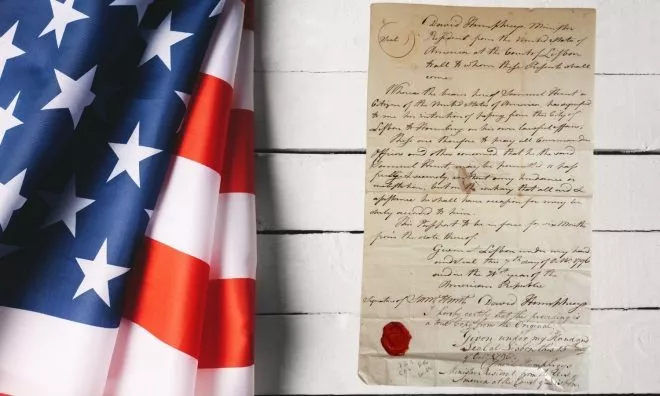 David Humphreys Minister
Seal
Resident from the United States of
America at the Court of Lisbon
to all to whom these Presents shall
come.
Whereas the bearer hereof Samuel
Citizen of the United States of America, has signified
to me his intention of passing from this City of
Lisbon to Hamburg on his own lawful affairs,
These are therefore to pray all Commanders
Officers and others concerned that he the said
Samuel may be permitted to pass
freely & securely without any hindrance or
molestation, but on the contrary that all aid &
assistance he shall have occasion for may be
duly accorded to him.
This Passport to be in force for six Months
from the date thereof.
Given at Lisbon under my hand
and seal this 7th day of Octr. 1796
and in the year of the
American Republic
Signature of David Humphreys
I hereby certify that the preceding is
a true Copy from the Original.
Given under my Hand and
Seal at Lisbon this
Humphreys
Minister resident from the United States of
America at the Court of Lisbon